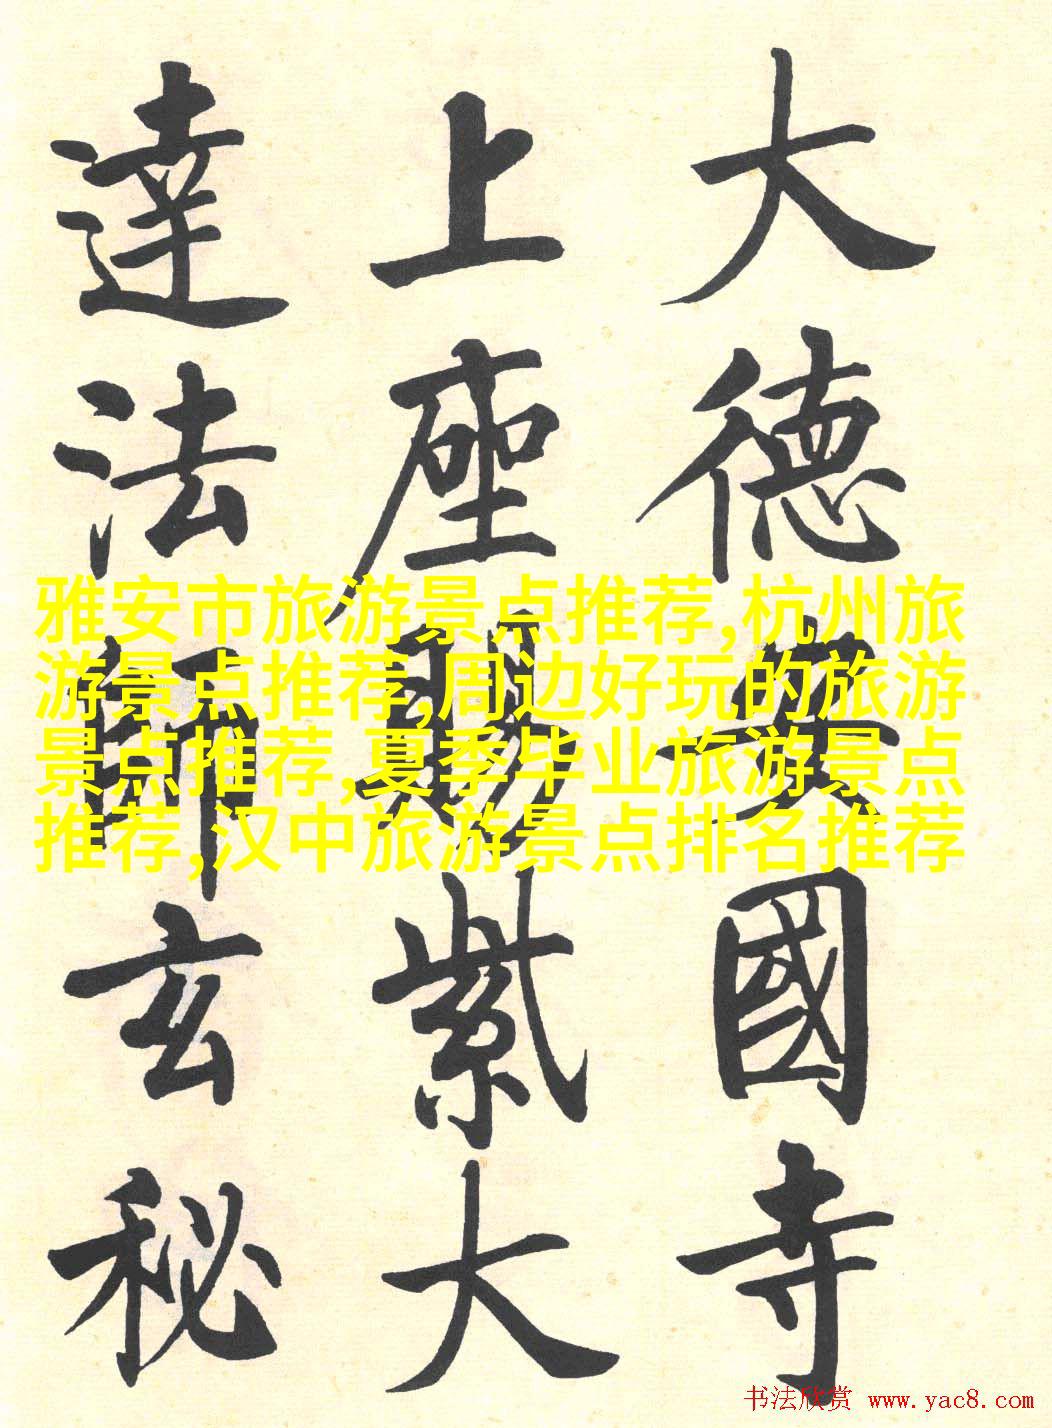 大德安國寺
上座賜紫大
達法師玄秘
雅安市旅游景点推荐,杭州旅
游景点推荐,周边好玩的旅游
景点推荐,夏季毕业旅游景点
推荐,汉中旅游景点排名推荐
书法欣赏 www.yac8.com